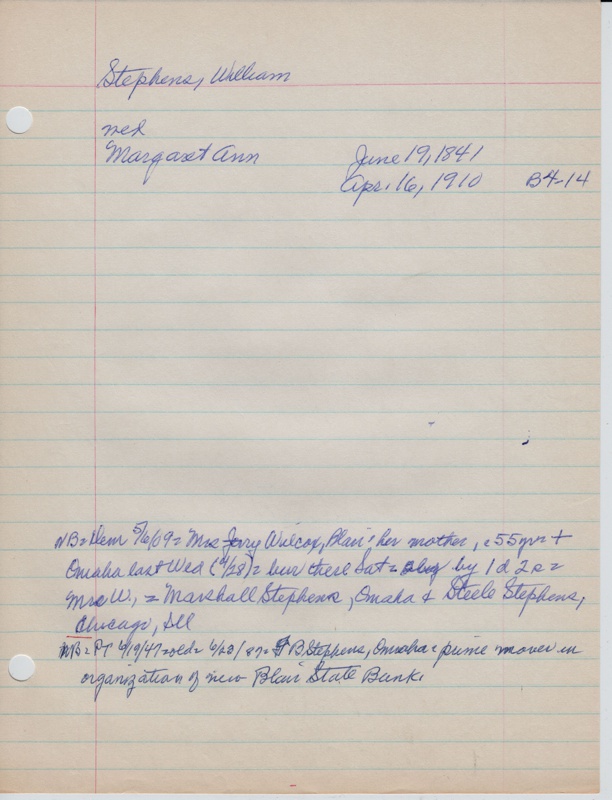 Stephens, William
wed
Margaret Ann June 19, 1841
Apr. 16, 1910 B4-14
NB = Dem 5/6/09 = Mrs Jerry Wilcox, Blair: her mother, c 55 yr = +
Omaha last Wed (4/28) = bur there Sat = by 1 d 2 s =
Mrs W, = Marshall Stephens, Omaha & Steele Stephens,
Chicago, Ill
NB = PT 6/19/47 = old = B Stephens, Omaha = prime mover in
organization of new Blair State Bank.